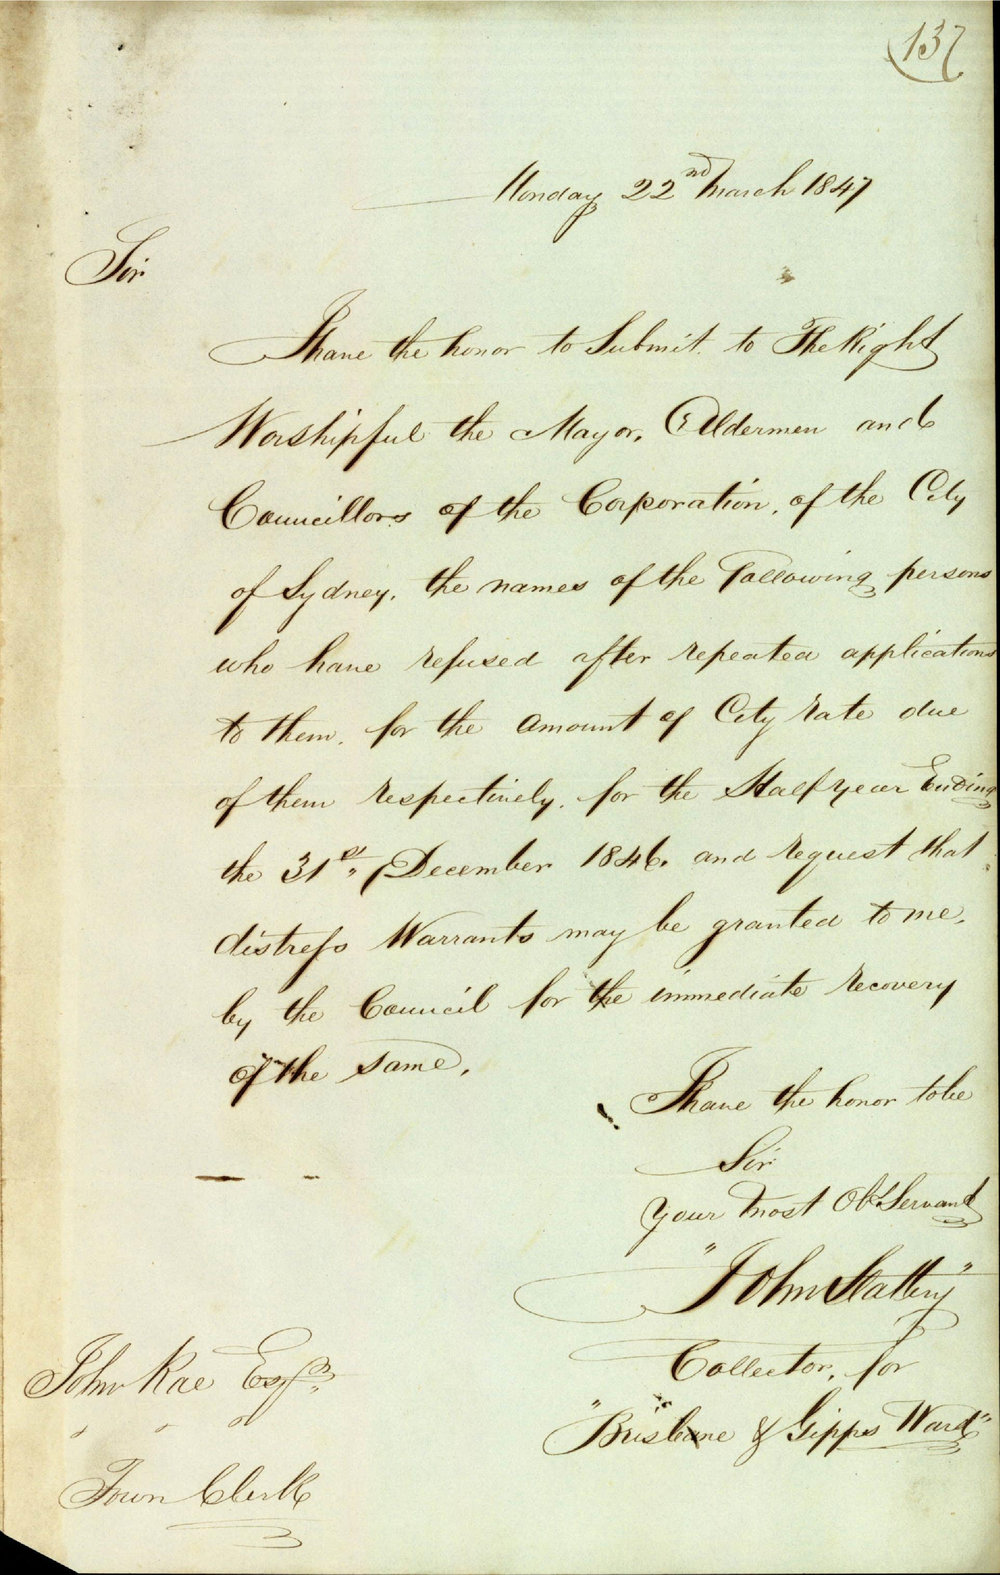 137
Monday 22nd March 1847
Sir
I have the honor to Submit. to The Right
Worshipful the Mayor, Aldermen and
Councillors of the Corporation, of the City
of Sydney, the names of the Following persons
who have refused after repeated applications
to them, for the amount of City rate due
of them respectively, for the Half year Ending
the 31st December 1846. and request that
distress Warrants may be granted to me,
by the Council for the immediate recovery
of the same,
I have the honor to be
Sir
your most Obt Servant
"John Slattery"
Collector, for
"Brisbane & Gipps Ward"
John Rae Esqre
" " "
Town Clerk